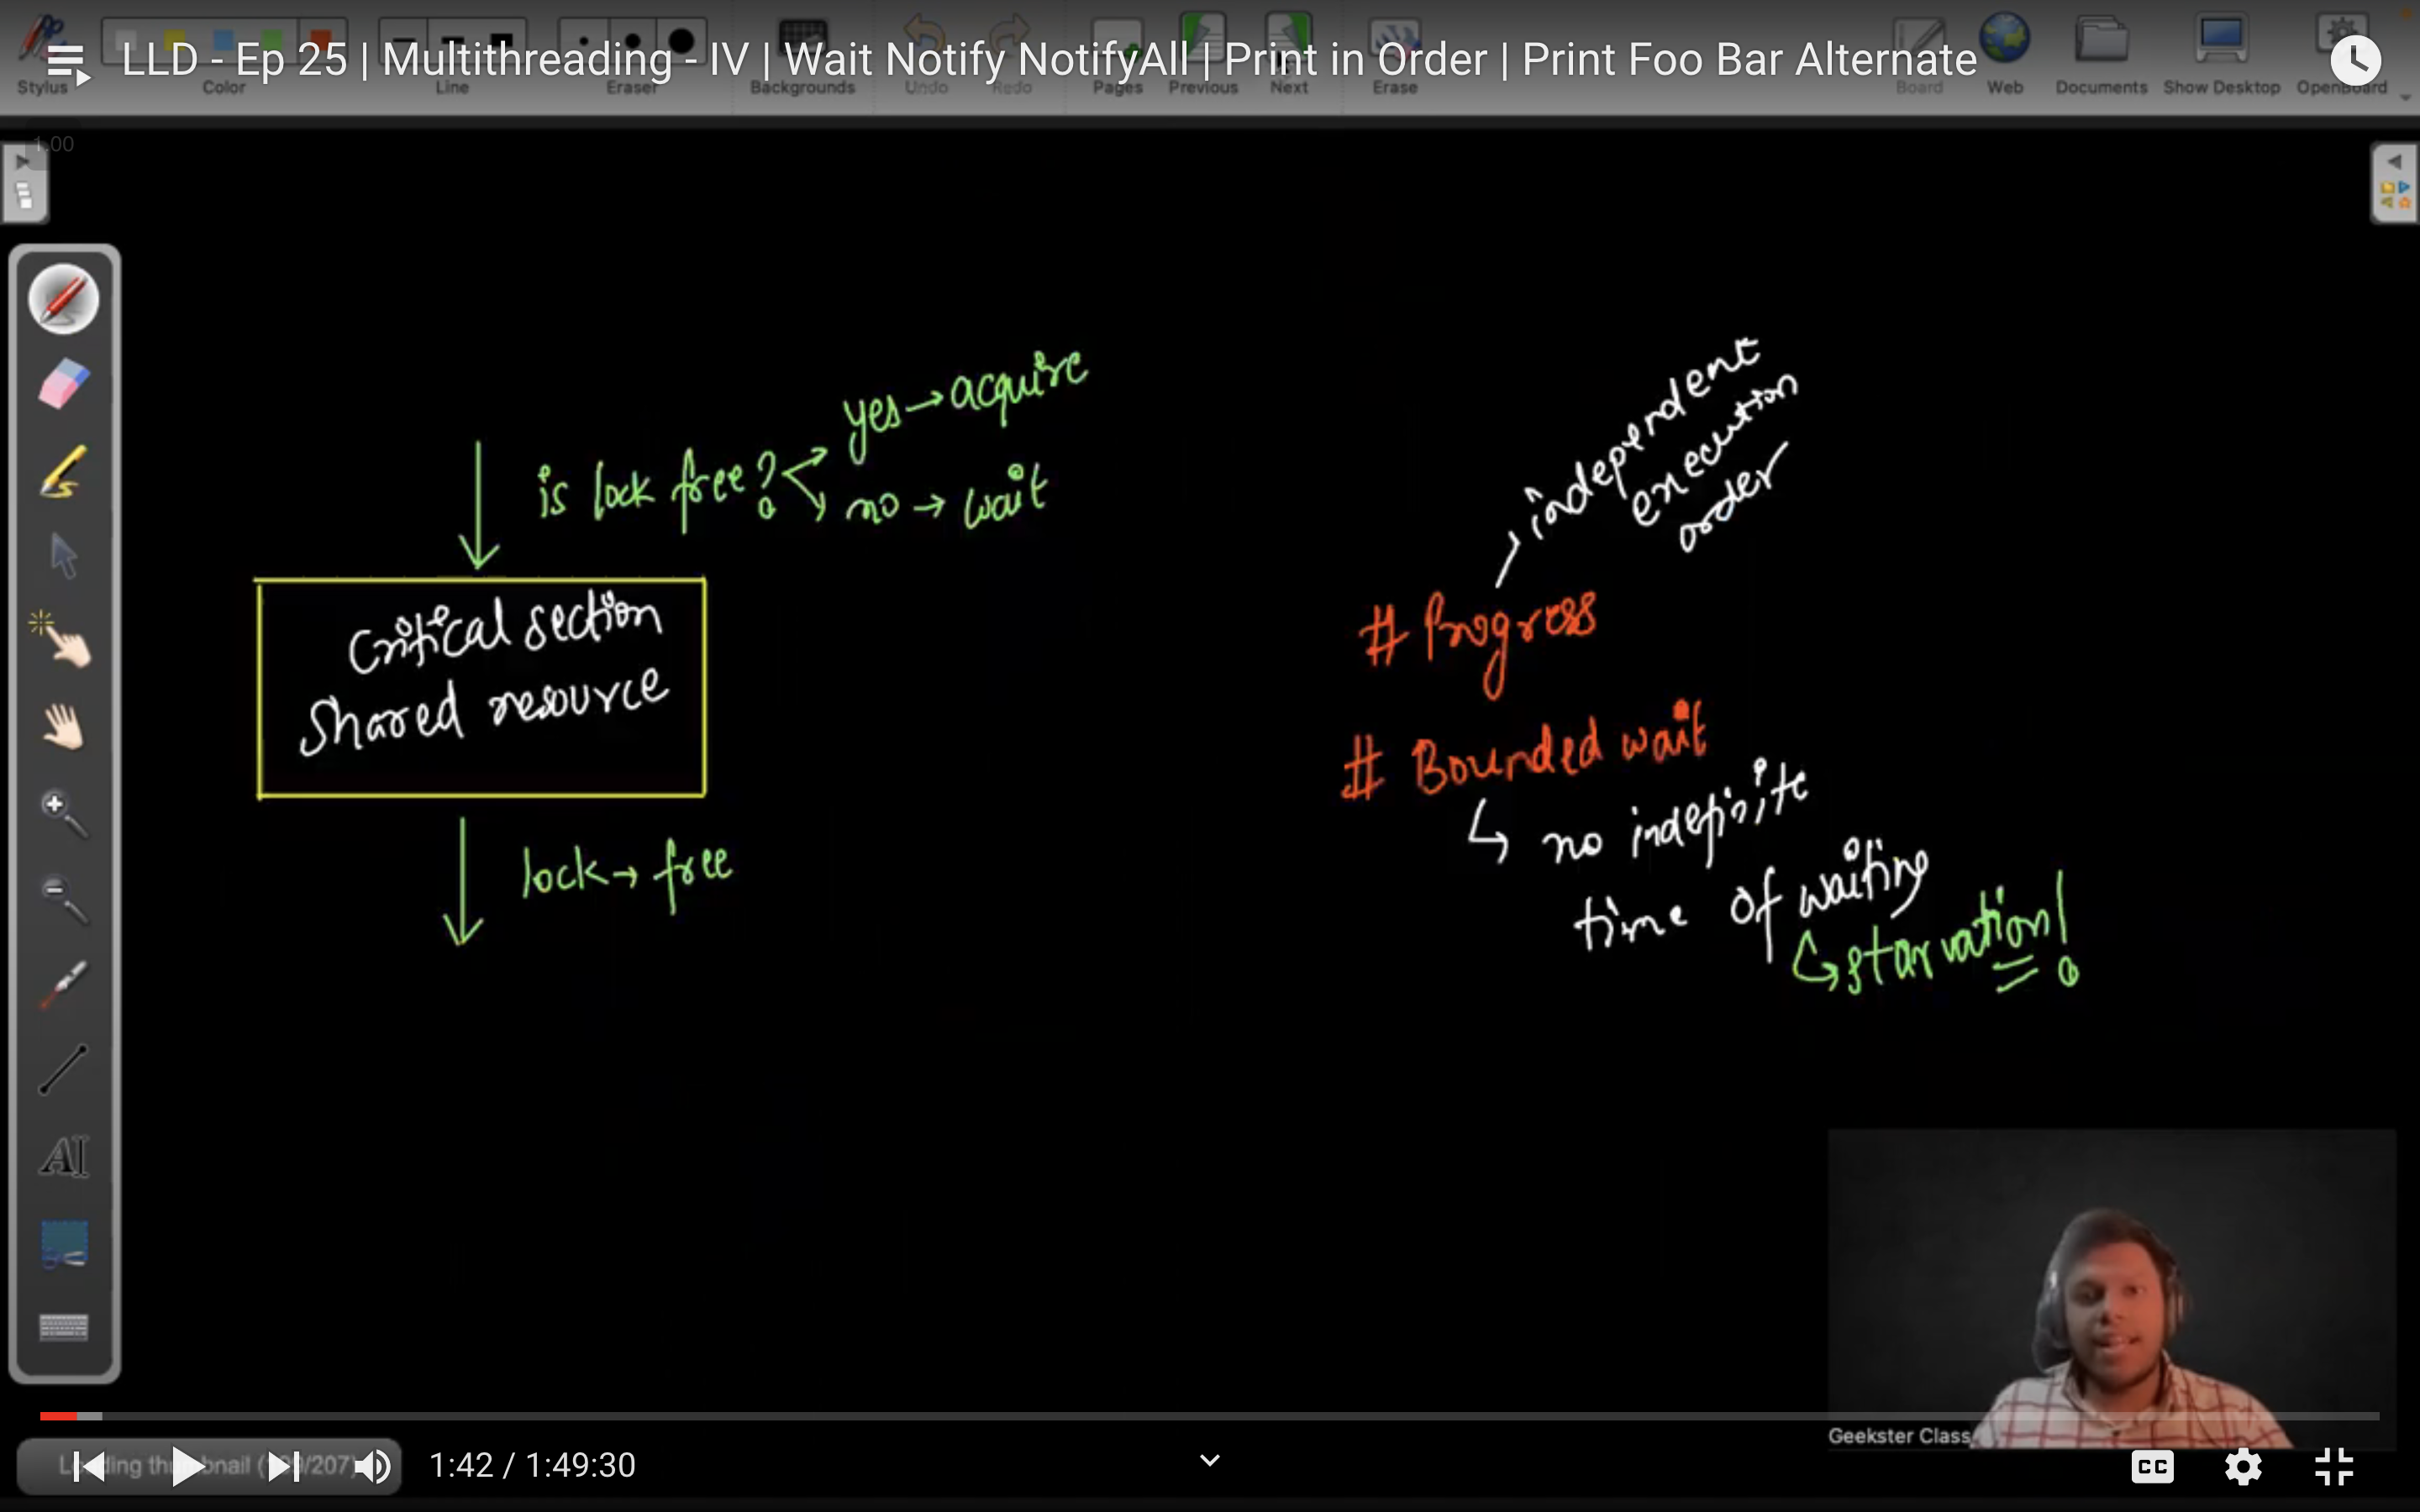 LLD - Ep 25 | Multithreading - IV | Wait Notify NotifyAll | Print in Order | Print Foo Bar Alternate
Stylus Color Line Eraser Backgrounds Undo Redo Pages Previous Next Erase Board Web Documents Show Desktop OpenBoard
1.00
yes → acquire
is lock free?
no → wait
Critical section
Shared resource
lock → free
independent
execution
order
# Progress
# Bounded wait
no indefinite
time of waiting
starvation!
AI
Geekster Class
Loading thumbnail /207)
1:42 / 1:49:30
CC